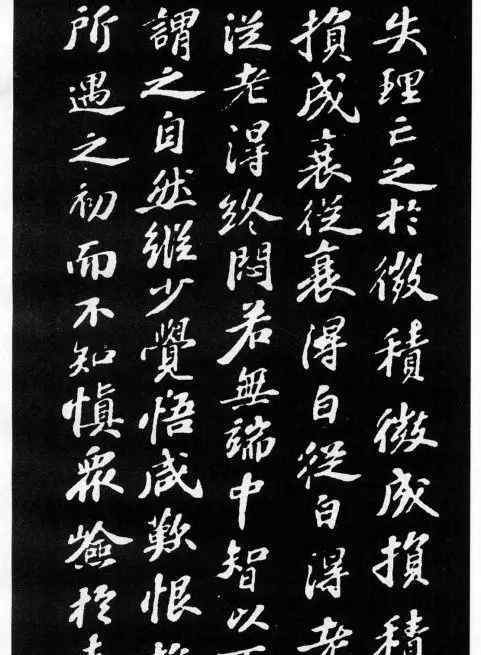 失理亡之於微積微成損積
損成衰從衰得白從白得老
從老得終悶若無端中智以下
謂之自然縱少覺悟咸歎恨於
所遇之初而不知慎眾險於